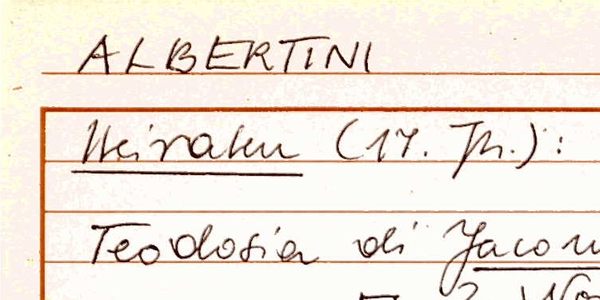 ALBERTINI
Heiraten (17. Jh.):
Teodosia di Jacom